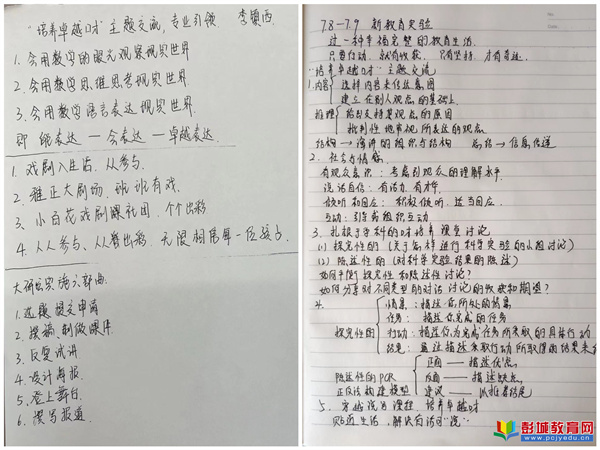 "培养卓越口才"主题交流,专业引领
李颖西
1. 会用数学的眼光观察现实世界
2. 会用数学思维思考现实世界
3. 会用数学语言表达现实世界.
即 能表达 — 会表达 — 卓越表达.
1. 戏剧入生活, 人人参与.
2. 雅正大剧场, 班班有戏.
3. 小白花戏剧课社团, 个个出彩
4. 人人参与, 人人都出彩, 无限相信每一位孩子.
大研究实施六部曲
1. 选题 提交申请
2. 撰稿 制做课件.
3. 反复试讲
4. 设计海报.
5. 登上舞台.
6. 撰写报道.
7.8-7.9 新教育实验
过一种幸福完整的教育生活.
只要行动, 就有收获, 只有坚持, 才有奇迹.
"培养卓越口才"主题交流
1. 内容 选择内容来传达意图
建立在别人观点的基础上
推理 给出支持某观点的原因
批判性地审视所表达的观点.
结构 → 演讲的组织与结构 总结 → 信息传递
2. 社会与情感.
有观众意识: 考虑到观众的理解水平
说话自信: 有活力, 有才华
倾听和回应: 积极倾听, 适当回应.
互动: 引导与组织互动
3. 扎根于学科的口才培养 课堂讨论
(1) 探究性的 (关于怎样进行科学实验的小组讨论)
(2) 陈述性的 (对科学实验结果的陈述)
如何平衡探究性和陈述性讨论?
如何分享对不同类型的对话讨论的收获和期望?
4.
探究性的
情景: 描述你所处的情景
任务: 描述你完成的任务
行动: 描述你为完成任务所采取的具体行动
结果: 
陈述性的PCR
正反法构建模型
正面 — 描述优点.
反面 — 描述缺点.
建议 —
5. 穿越说写课程, 培养卓越口才
贴近生活, 解决有话可"说"
彭城教育网
www.pcjyedu.cn